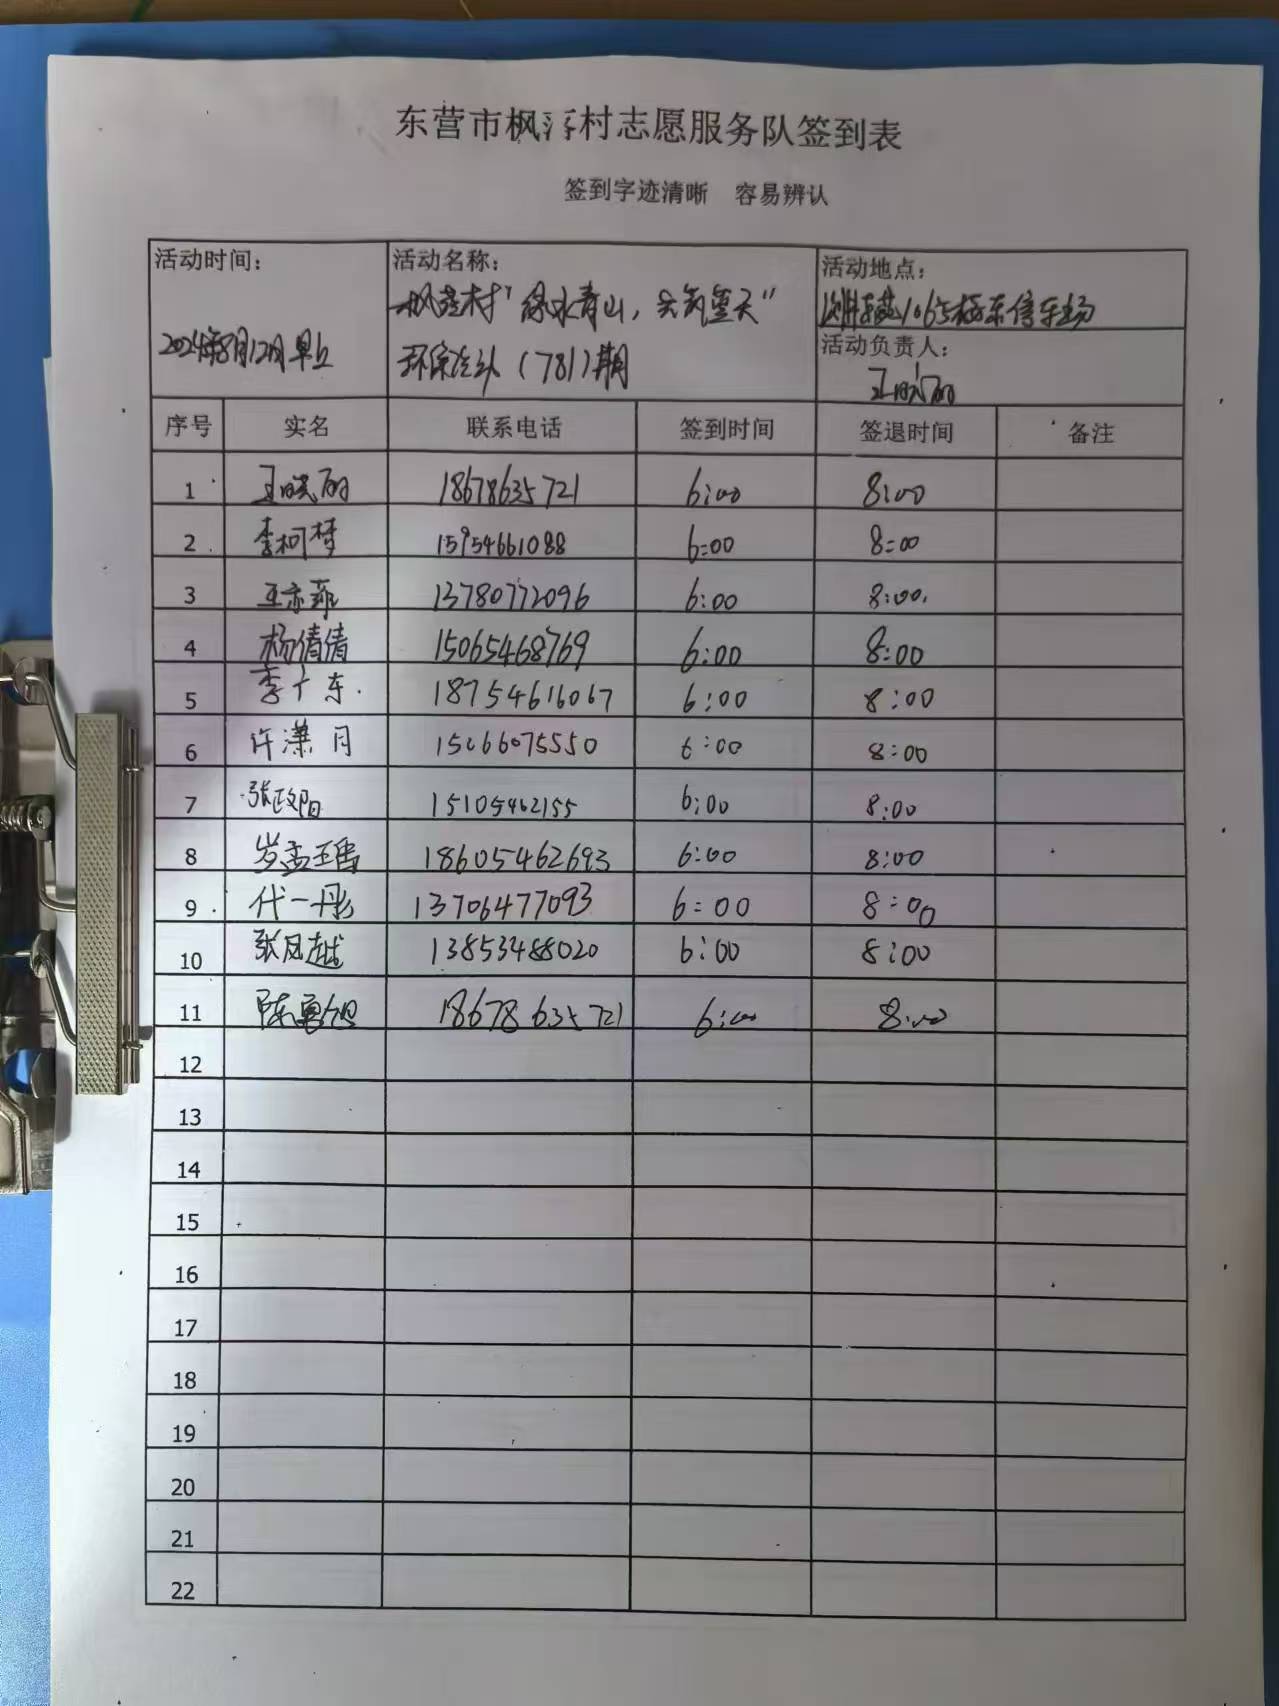 东营市枫 村志愿服务队签到表
签到字迹清晰 容易辨认
活动时间: 活动名称: 活动地点:
枫 村"绿水青山, 共筑蓝天"
1065 东停车场
2024年8月12日早上
环保 (781)期
活动负责人:
王晓丽
序号 实名 联系电话 签到时间 签退时间 备注
1 王晓丽 18678635721 6:00 8:00
2 李柯梦 15954661088 6:00 8:00
3 王亦菲 13780772096 6:00 8:00
4 杨倩倩 15065468769 6:00 8:00
5 李 东 18754616067 6:00 8:00
6 许潇月 15066075550 6:00 8:00
7 张政阳 15105462155 6:00 8:00
8 岁孟玉禹 18605462693 6:00 8:00
9 代一彤 13706477093 6:00 8:00
10 张凤越 13853488020 6:00 8:00
11 陈 旭 18678635721 6:00 8:00
12
13
14
15
16
17
18
19
20
21
22